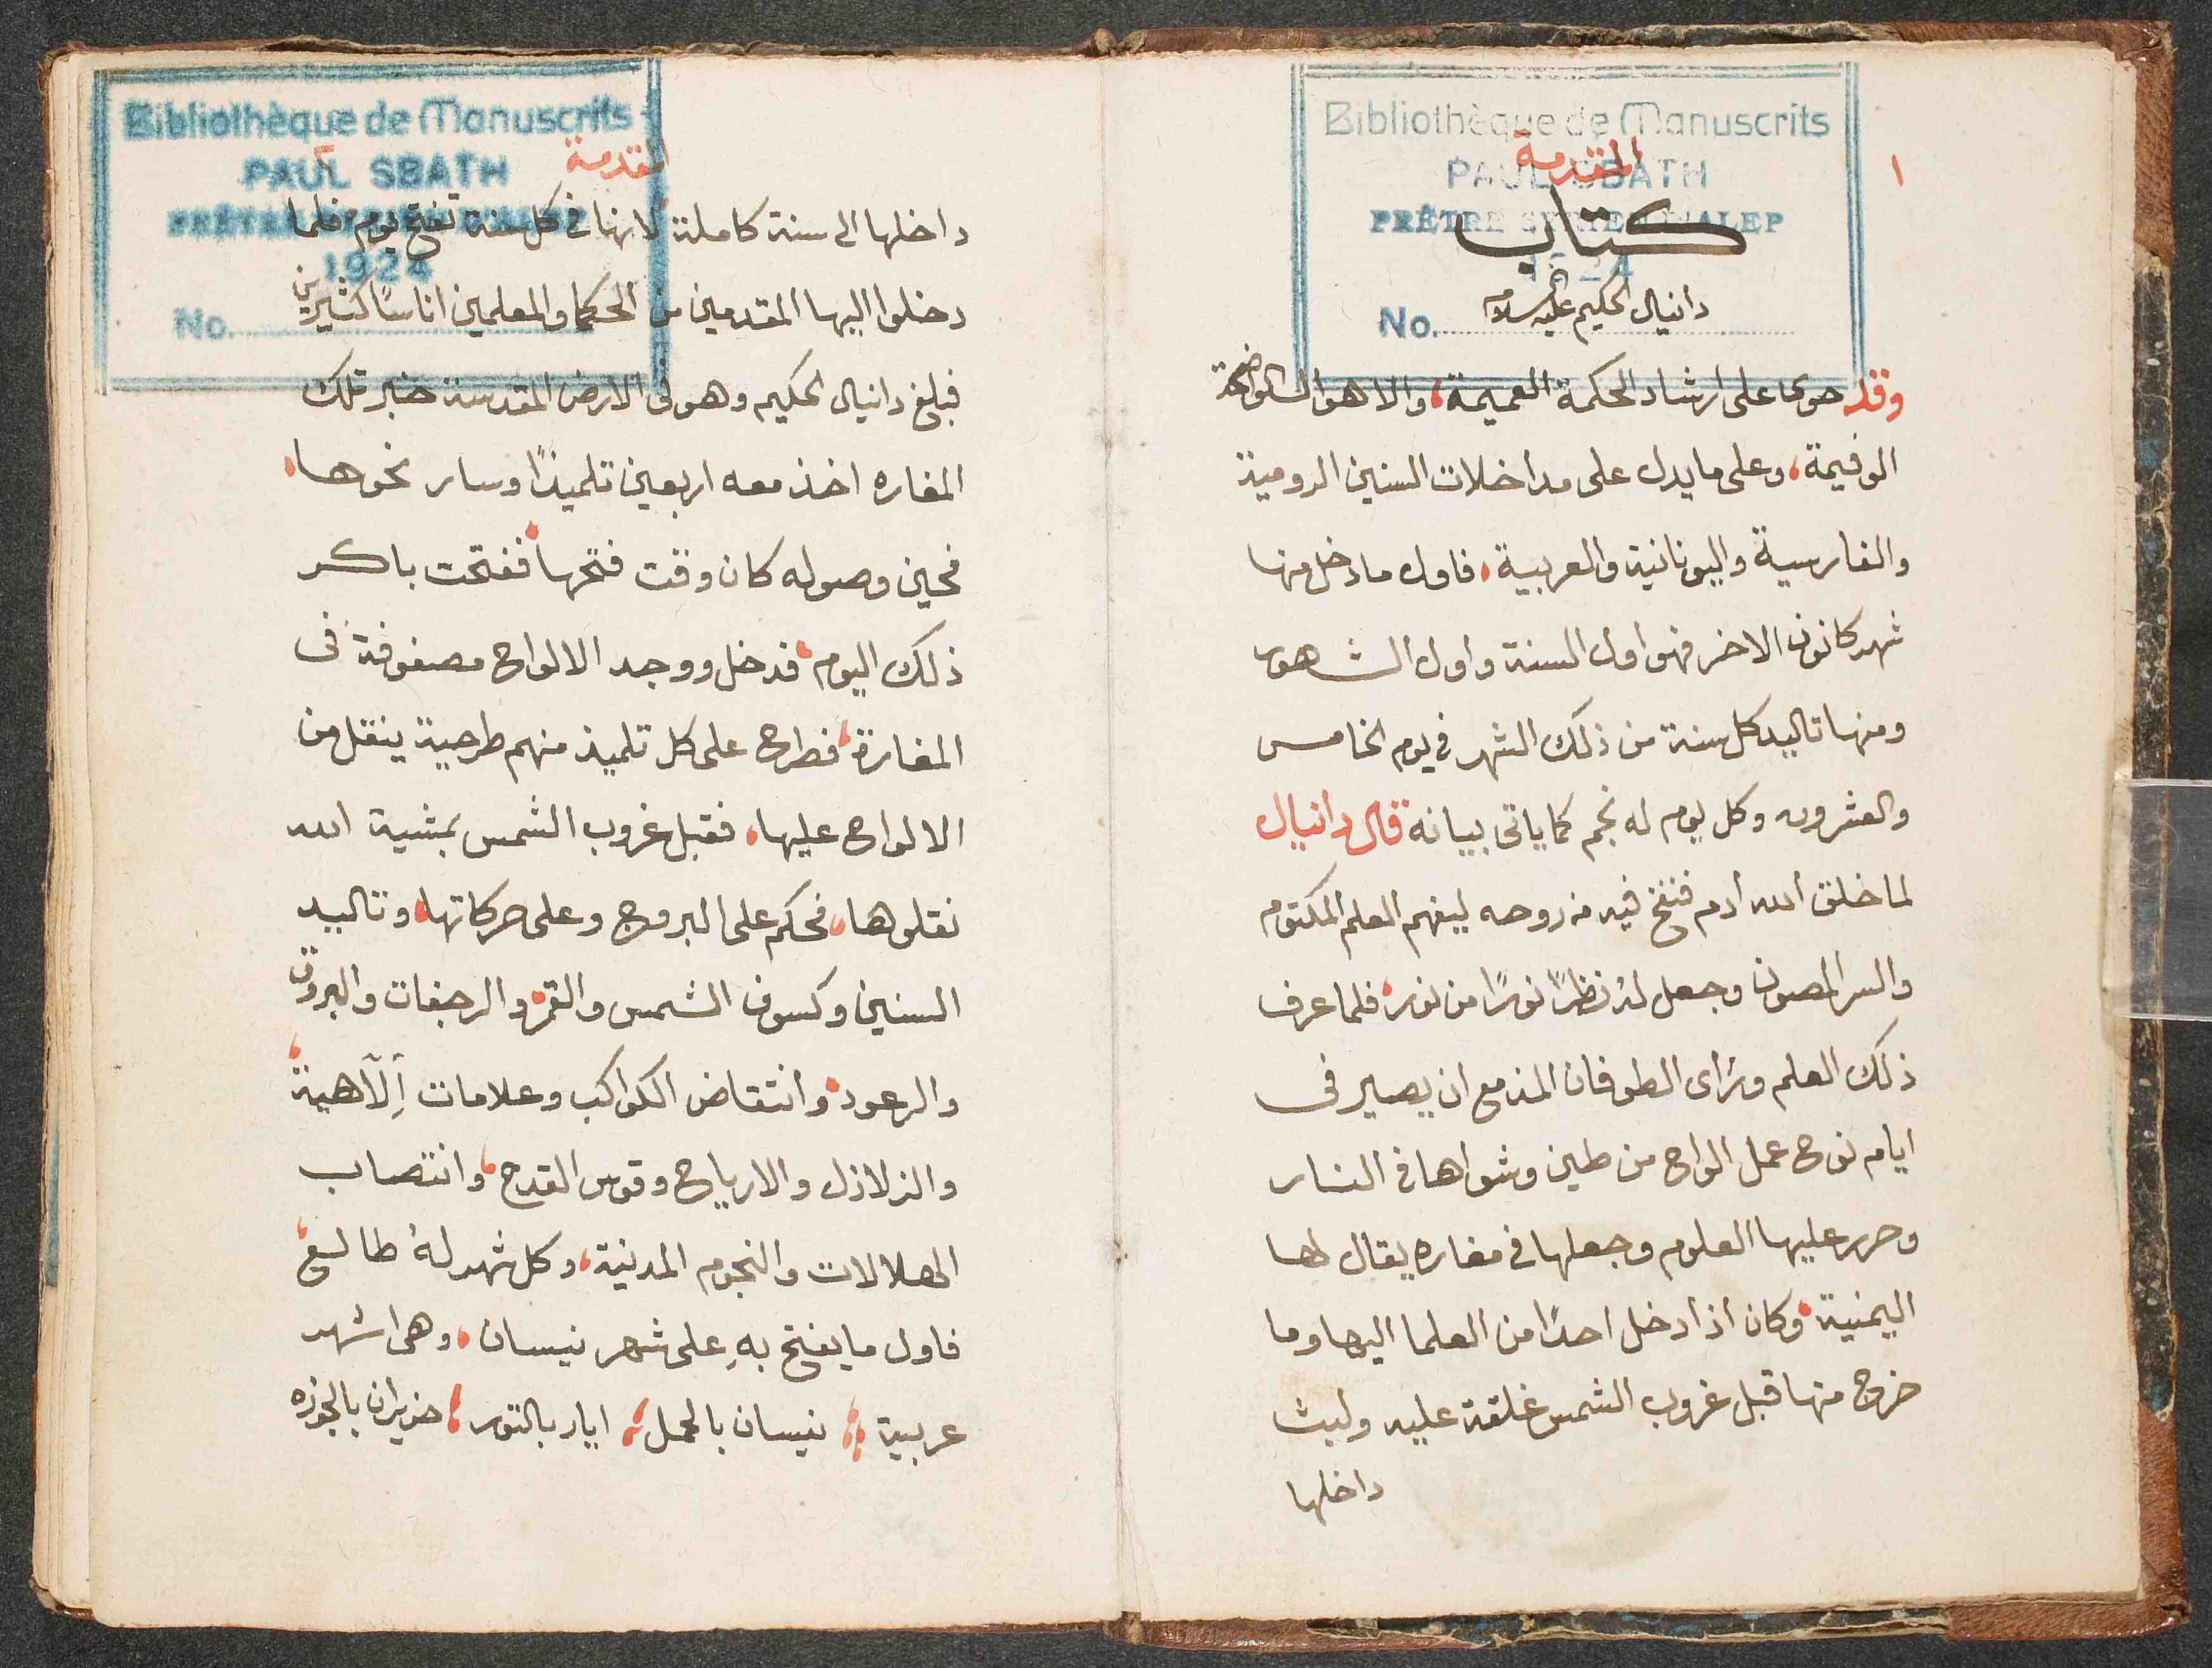 ١
Bibliothèque de Manuscrits
PAUL SBATH
PRÊTRE SYRIEN D'ALEP
1924
No.
المقدمة
كتاب
دانيال الحكيم عليه السلام
وقد حوى على ارشاد الحكمة العميمة، والاهوال الواضحة
الوفيمة، وعلى ما يدل على مداخلات السنين الرومية
والفارسية واليونانية والعربية، فاول ما دخل منها
شهر كانون الاخر فهو اول السنة واول الشهور
ومنها تاليد كل سنة من ذلك الشهر في يوم الخامس
والعشرون وكل يوم له نجم كما ياتى بيانه قال دانيال
لما خلق الله ادم فنفخ فيه من روحه ليفهم العلم المكتوم
والسر المصون وجعل لهُ نظرًا نورًا من نوره فلما عرف
ذلك العلم وراى الطوفان المزمع ان يصير فى
ايام نوح عمل الواح من طين وشواها في النار
وحرر عليها العلوم وجعلها في مغاره يقال لها
اليمنية، وكان اذا دخل احدًا من العلما اليها وما
خرج منها قبل غروب الشمس غلقة عليه ولبث
داخلها
Bibliothèque de Manuscrits
PAUL SBATH
PRÊTRE SYRIEN D'ALEP
1924
No.
المقدمة
داخلها الى سنة كاملة لانها في كل سنة تفتح يوم فلما
دخلوا اليها المقدمين من الحكما والمعلمين اناسًا كثيرين
فبلغ دانيال الحكيم وهو فى الارض المقدسة خبر تلك
المغاره اخذ معه اربعين تلميذًا وسار نحوها،
فحين وصوله كان وقت فتحها، ففتحت باكر
ذلك اليوم، فدخل ووجد الالواح مصفوفة فى
المغارة، فطرح على كل تلميذ منهم طرحية ينقل من
الالواح عليها، فقبل غروب الشمس بمشية الله
نقلوها، فحكم على البروج وعلى حركاتها، وتاليد
السنين وكسوف الشمس والقمر، والرجفات والبروق
والرعود، وانتقاض الكواكب وعلامات اِلآهية،
والزلازل والارياح وقوس القدح، وانتصاب
الهلالات والنجوم المدنية، وكل شهر لهُ طالع،
فاول ما يفتح بهِ على شهر نيسان، وهى اشهر
عربية؛ نيسان بالحمل؛ ايار بالتور؛ حزيران بالجوزه